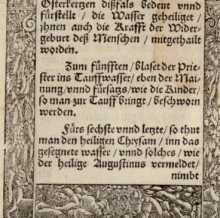 Osterkertzen dißfals bedeut vnnd
fürstellt / die Wasser geheiliget /
jhnen auch die Krafft der Wider,
geburt deß Menschen / mitgethailt
worden.
Zum fünfften / blaset der Prie-
ster ins Tauffwasser / eben der Mai-
nung / vnnd fürsatz / wie die Kinder /
so man zur Tauff bringt / beschworn
werden.
Fürs sechste vnnd letzte / so thut
man den heiligen Chrysam / inn das
gesegnete wasser / vnnd solches / wie
der heilige Augustinus vermeldet /
nimbt